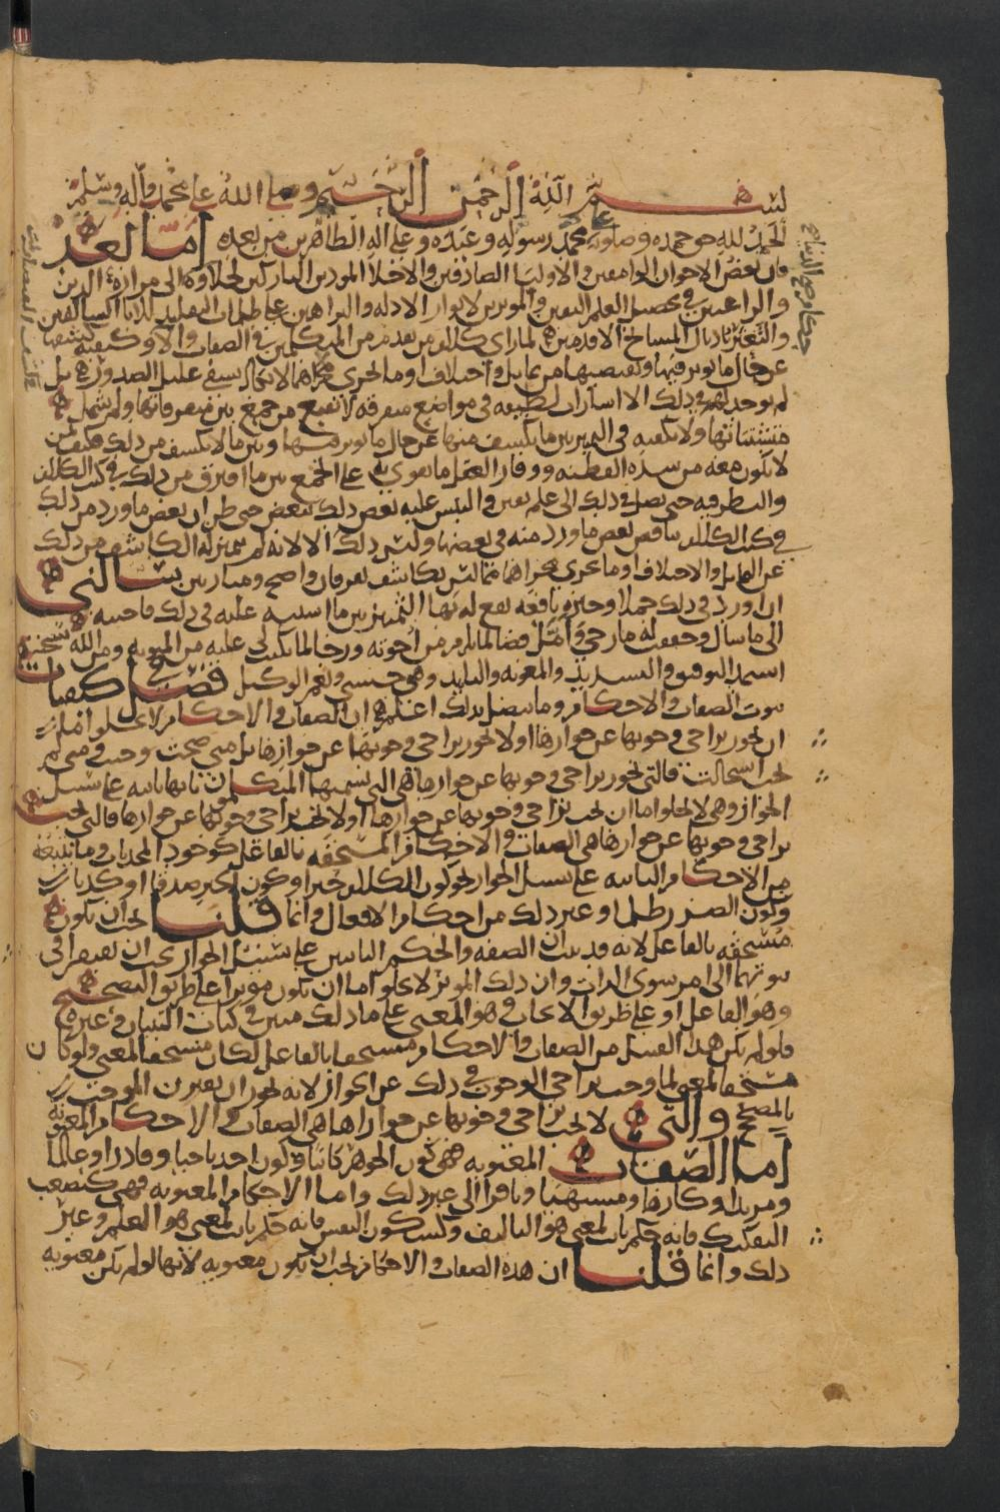 بسم الله الرحمن الرحيم وصلى الله على محمد وآله وسلم
الحمد لله حق حمده وصلوته على محمد رسوله وعبده وعلى اله الطاهرين من بعده أما بعد
فان بعض الاخوان والاوليا الصادقين والاخلا الى من ازمة الدين
والراغبين في تحصيل العلم اليقين والموثرين لانوار الادلة والبراهين على ظلمات التقليد
والتعثر باذيال المشايخ الاقدمين لما راى كلام من تقدم من المتكلمين في الصفات و وكيفية
عن حال ما يوثر فيها وتقتضيها من تماثل واختلاف او ما يجري مجراهما لا يكاد يشفي غليل الصدور بل
لم يوجد لهم في ذلك الا اشارات لطيفة في مواضع متفرقة لا تقنع من جمع بين متفرقاتها ولم شمل
متشتتاتها ولا تكفيه في التمييز بين ما يكشف منها عن حال ما يوثر فيها وبين ما لا يكشف عن ذلك فكيف بمن
لا يكون معه من شدة الفطنة ووفار العقل ما يقوى به على الجمع بين ما افترق من ذلك في كتب الكلام
والنظر فيه حتى يصل في ذلك الى علم يقين والتبس عليه بعض ذلك ببعض حتى ظن ان بعض ما ورد من ذلك
في كتب الكلام يناقض بعض ما ورد منه في بعضها وليس ذلك الا لانه لم يميز له الكاشف من ذلك
عن التماثل والاختلاف او ما يجري مجراهما مما ليس بكاشف بفرقان واضح سالني
ان اورد في ذلك جملا وجيزة نافعة يقع له بها التمييز بين ما اشتبه عليه في ذلك فاجبته
الى ما سال وحققت له ما رجى وامل قضا لما يلزم من اخوته ورجا لما يكتب لي عليه من المثوبة ومن الله سبحنه
استمد التوفيق والتسديد والمعونة والتاييد وهو حسبي ونعم الوكيل فصل في كيفيات
ثبوت الصفات والاحكام وما يتصل بذلك اعلم ان الصفات والاحكام لا تخلو اما
ان يجوز تراخي وجوبها عن جوازها او لا يجوز تراخي وجوبها عن جوازها بل متى صحت وجبت ومتى لم
تجب استحالت فالتي يجوز تراخي وجوبها عن جوازها هي التي نسميها المتكلمون بانها ثابتة على سبيل
الجواز وهي لا تخلو اما ان يجب تراخي وجوبها عن جوازها او لا يجب تراخي وجوبها عن جوازها فالتي يجب
تراخي وجوبها عن جوازها هي الصفات والاحكام المستحقة بالفاعل كوجود المحدثات وما يتبعه
من الاحكام الثابتة على سبيل الجواز نحو كون الكلام خبرا وكون الخبر صدقا او كذبا
وكون الضرر ظلما او غير ذلك من احكام الافعال وانما قلنا يجب ان تكون
مستحقة بالفاعل لانه قد ثبت ان الصفة والحكم الثابتين على سبيل الجواز يجب ان يفتقرا في
ثبوتهما الى امر سوى الذات وان ذلك الموثر لا يخلو اما ان يكون موثرا على طريق التصحيح
وهو الفاعل او على طريق الايجاب وهو المعنى على ما ذلك مبين في كتاب التبيان وغيره
فلو لم يكن هذا القبيل من الصفات والاحكام مستحقا بالفاعل لكان مستحقا لمعنى ولو كان
مستحقا لمعنى لما وجب تراخي الوجوب في ذلك عن الجواز لانه يجوز ان يقترن الموجب
بالمصحح والتي لا يجب تراخي وجوبها عن جوازها هي الصفات والاحكام المعنوية
أما الصفات المعنوية فهي كون الجوهر كائنا وكون احدنا حيا وقادرا وعالما
ومريدا وكارها ومشتهيا ونافرا الى غير ذلك واما الاحكام المعنوية فهي كتصعب
التفكيك فانه حكم ثابت لمعنى هو التاليف وكسكون النفس فانه حكم ثابت لمعنى هو العلم وغير
ذلك وانما قلنا ان هذه الصفات والاحكام يجب ان تكون معنوية لانها لو لم تكن معنوية